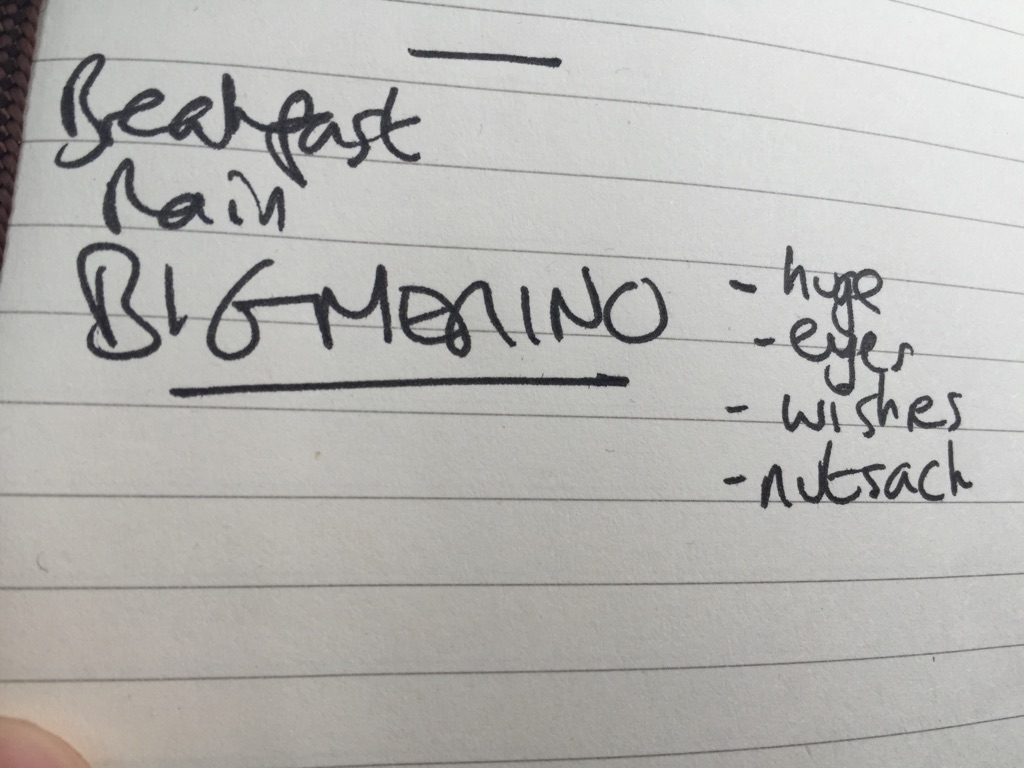 Breakfast
Rain
BIG MERINO
- huge
- eyes
- wishes
- nutsack